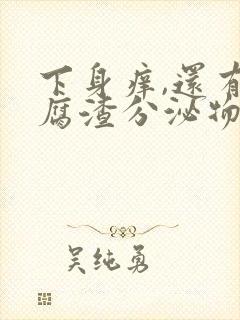 下身痒,還有
腐渣分泌物
吴纯勇